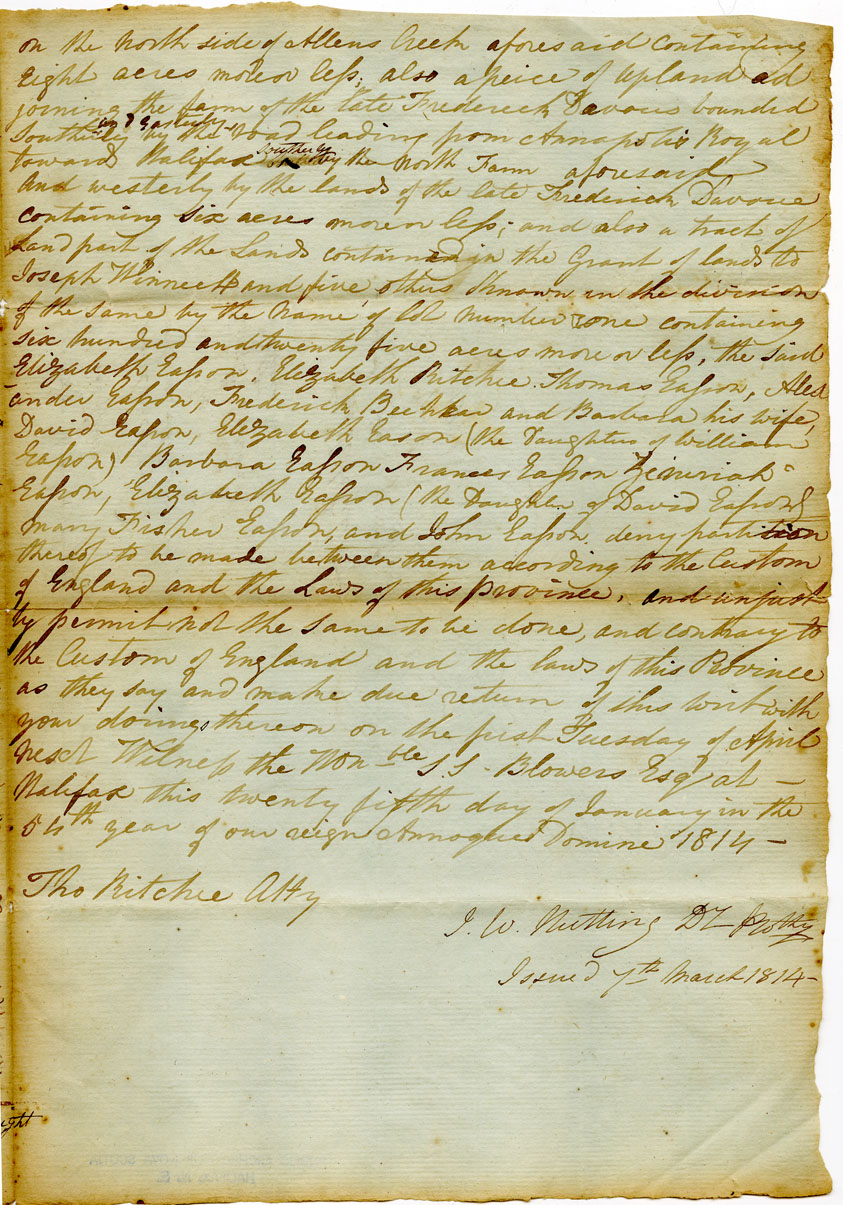 on the North side of Allens Creek aforesaid containing
Eight acres more or less, also a peice of Upland ad
joining the farm of the late Frederick Davoue bounded
in & Easterly
Southerly by the road leading from Annapolis Royal
towards Halifax Southerly by the North Farm aforesaid
And westerly by the lands of the late Frederick Davoue
containing six acres more or less; and also a tract of
Land part of the Lands contained in the Grant of lands to
Joseph Winnett and five others Known in the division
of the same by the Name of lot number one containing
six hundred and twenty five acres more or less, the said
Elizabeth Easson, Elizabeth Ritchie. Thomas Easson, Alex
ander Easson, Frederick Beehkar and Barbara his wife,
David Easson, Elizabeth Eason (the Daughter of William
Easson) Barbara Easson Frances Easson Zeruriah
Easson, Elizabeth Easson (the Daughter of David Easson)
Mary Fisher Easson, and John Easson, deny partition
thereof to be made between them according to the Custom
of England and the Laws of this province, and unjust
ly permit not the same to be done, and contrary to
the Custom of England and the laws of this Province
as they say and make due return of this writ with
your doings thereon on the first Tuesday of April
next Witness the Hon-ble S. S. Blowers Esqr at -
Halifax this twenty fifth day of January in the
54th year of our reign Annoque Domini 1814 -
Tho Ritchie Atty
J. W. Nutting DY Prothy
Issued 7th March 1814-
ight